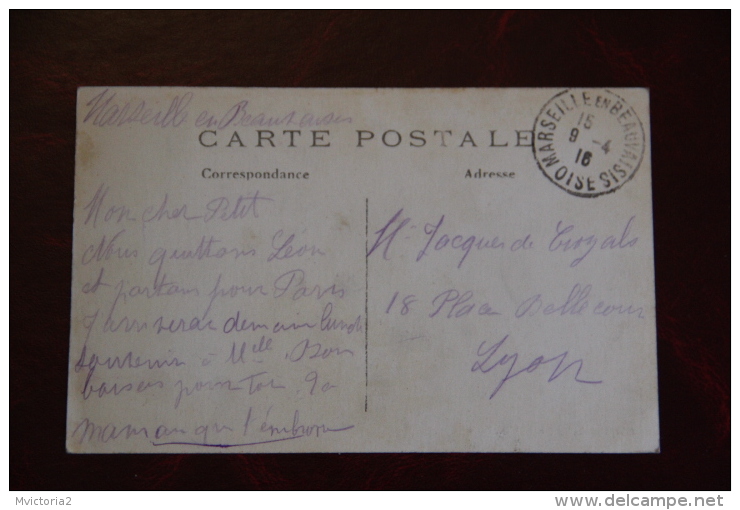 Marseille en Beauvaisis
CARTE POSTALE
MARSEILLE EN BEAUVAISIS
15
9 -4
16
OISE
Correspondance
Adresse
Mon cher Petit
Nous quittons Léon
et partons pour Paris
J'arriverai demain lundi
souvenir à Melle Bon
baisers pour toi
maman qui t'embrasse
Mr Jacques de
18 Place Bellecour
Lyon
Mvictoria2
http://www.delcampe.net